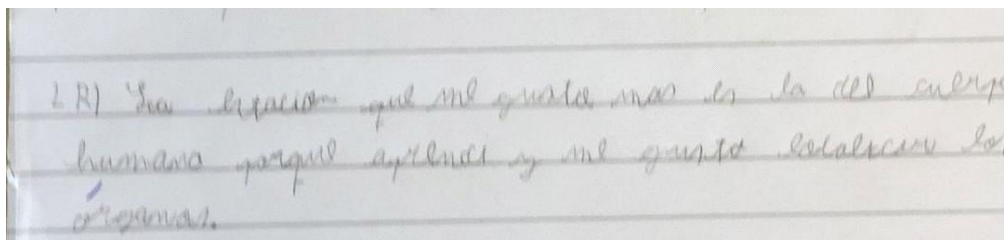 2 R) La estacion que me gusta mas es la del cuerp
humano porque aprendi y me gusto colocar lo
órganos.